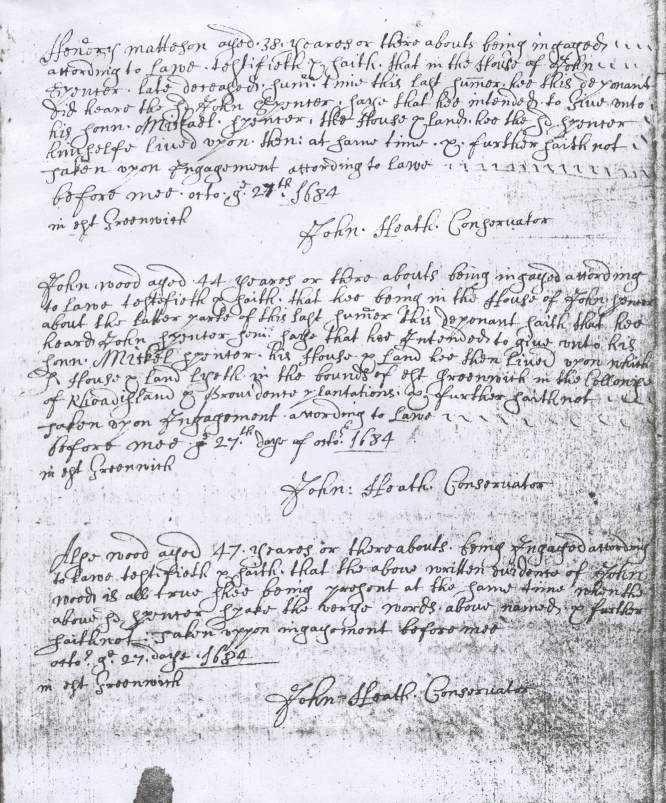 Henery matteson aged 38 yeares or there abouts being ingaged
according to Lawe testifieth & saith that in the House of John
Spencer late deceased sum time this Last summer hee this deponant
did heare the sd John Spencer saye that hee intended to Give unto
his sonn Mickael Spencer the House & Land hee the sd Spencer
himselfe lived upon then at same time & further saith not
Taken upon Engagement according to Lawe
before mee octo ye 27th 1684
in est Greenwich
John Heath Conservator
John wood aged 44 yeares or there abouts being ingaged according
to Lawe testifieth & saith that hee being in the House of John Spencer
about the later parte of this last summer this deponant saith that hee
heard John Spencer seni saye that hee Intended to give unto his
sonn Mickel Spencer his House & Land hee then Lived upon which
sd House & Land Lyeth in the bounds of est Greenwich in the Collonye
of Rhoadisland & Providence plantations & further saith not
Taken upon Engagement according to Lawe
before mee ye 27th daye of octo 1684
in est Greenwich
John Heath Conservator
wood aged 47 yeares or thereabouts being Ingaged according
to Lawe testifieth & saith that the above written evidence of John
wood is all true shee being present at the same time when the
above sd Spencer spake the verye words above named & further
saith not Taken uppon ingagement before mee
octo ye 27 daye 1684
in est Greenwich
John Heath Conservator